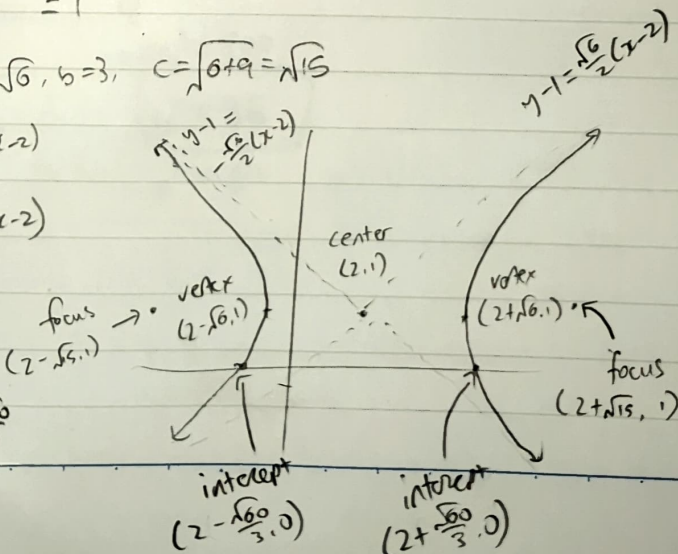 = 1
√6, b=3, c=√(6+9) = √15
x-2)
x-2)
y-1 =
-√6/2 (x-2)
y-1 = √6/2 (x-2)
center
(2,1)
vertex
(2-√6,1)
focus
(2-√15,1)
vertex
(2+√6,1)
focus
(2+√15, 1)
intercept
(2-√60/3,0)
intercept
(2+√60/3,0)